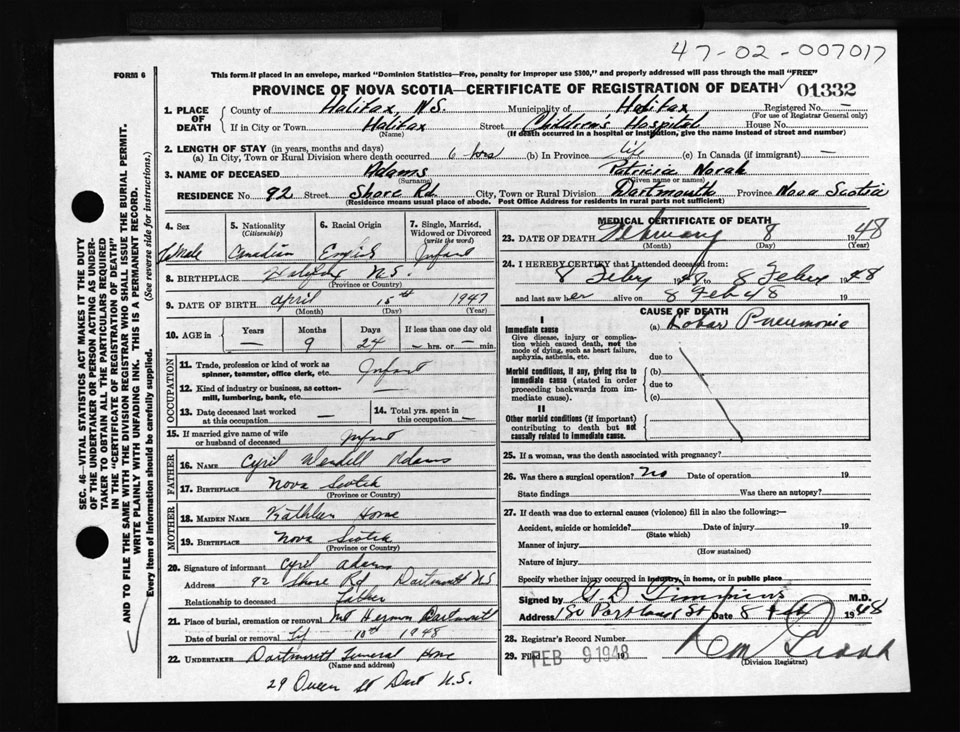 47-02-007017
FORM 6
This form if placed in an envelope, marked "Dominion Statistics—Free, penalty for improper use $300," and properly addressed will pass through the mail "FREE"
PROVINCE OF NOVA SCOTIA—CERTIFICATE OF REGISTRATION OF DEATH 01332
1. PLACE OF DEATH
County of Halifax, N.S. Municipality of Halifax Registered No. —
(For use of Registrar General only)
If in City or Town Halifax Street Children's Hospital House No.
(Name) (If death occurred in a hospital or institution, give the name instead of street and number)
2. LENGTH OF STAY (in years, months and days)
(a) In City, Town or Rural Division where death occurred 6 (b) In Province Life (c) In Canada (if immigrant) —
3. NAME OF DECEASED Adams Patricia Norah
(Surname) (Given name or names)
RESIDENCE No. 92 Street Shore Rd City, Town or Rural Division Dartmouth Province Nova Scotia
(Residence means usual place of abode. Post Office Address for residents in rural parts not sufficient)
4. Sex 5. Nationality (Citizenship) 6. Racial Origin 7. Single, Married, Widowed or Divorced (write the word)
Female Canadian English Infant
8. BIRTHPLACE Halifax N.S.
(Province or Country)
9. DATE OF BIRTH April 15th 1947
(Month) (Day) (Year)
10. AGE in Years Months Days If less than one day old
— 9 24 — hrs. or — min.
OCCUPATION
11. Trade, profession or kind of work as spinner, teamster, office clerk, etc. Infant
12. Kind of industry or business, as cotton-mill, lumbering, bank, etc.
13. Date deceased last worked at this occupation — 14. Total yrs. spent in this occupation —
15. If married give name of wife or husband of deceased Infant
FATHER
16. NAME Cyril Wendell Adams
17. BIRTHPLACE Nova Scotia
(Province or Country)
MOTHER
18. MAIDEN NAME Kathleen Horne
19. BIRTHPLACE Nova Scotia
(Province or Country)
20. Signature of informant Cyril Adams
Address 92 Shore Rd Dartmouth N.S
Relationship to deceased Father
21. Place of burial, cremation or removal Mt Hermon Dartmouth
Date of burial or removal 10th 1948
22. UNDERTAKER Dartmouth Funeral Home
(Name and address)
29 Queen St Dart N.S.
MEDICAL CERTIFICATE OF DEATH
23. DATE OF DEATH February 8 1948
(Month) (Day) (Year)
24. I HEREBY CERTIFY that I attended deceased from:
8 Feby 1948 to 8 Feby 1948
and last saw her alive on 8 Feb 48 19
CAUSE OF DEATH
I
Immediate cause
Give disease, injury or complication which caused death, not the mode of dying, such as heart failure, asphyxia, asthenia, etc.
(a) Lobar Pneumonia
due to
Morbid conditions, if any, giving rise to immediate cause (stated in order proceeding backwards from immediate cause).
(b)
due to
(c)
II
Other morbid conditions (if important) contributing to death but not causally related to immediate cause.
25. If a woman, was the death associated with pregnancy?
26. Was there a surgical operation? No Date of operation 19
State findings Was there an autopsy?
27. If death was due to external causes (violence) fill in also the following:—
Accident, suicide or homicide? Date of injury 19
(State which)
Manner of injury
(How sustained)
Nature of injury
Specify whether injury occurred in industry, in home, or in public place
Signed by M.D.
Address 180 Portland St Date 8 Feb 1948
28. Registrar's Record Number
29. Filed FEB 9 1948 19
(Division Registrar)
SEC. 46—VITAL STATISTICS ACT MAKES IT THE DUTY
OF THE UNDERTAKER OR PERSON ACTING AS UNDER-
TAKER TO OBTAIN ALL THE PARTICULARS REQUIRED
IN THE "CERTIFICATE OF REGISTRATION OF DEATH"
AND TO FILE THE SAME WITH THE DIVISION REGISTRAR WHO SHALL ISSUE THE BURIAL PERMIT.
WRITE PLAINLY WITH UNFADING INK. THIS IS A PERMANENT RECORD.
Every item of information should be carefully supplied. (See reverse side for instructions.)